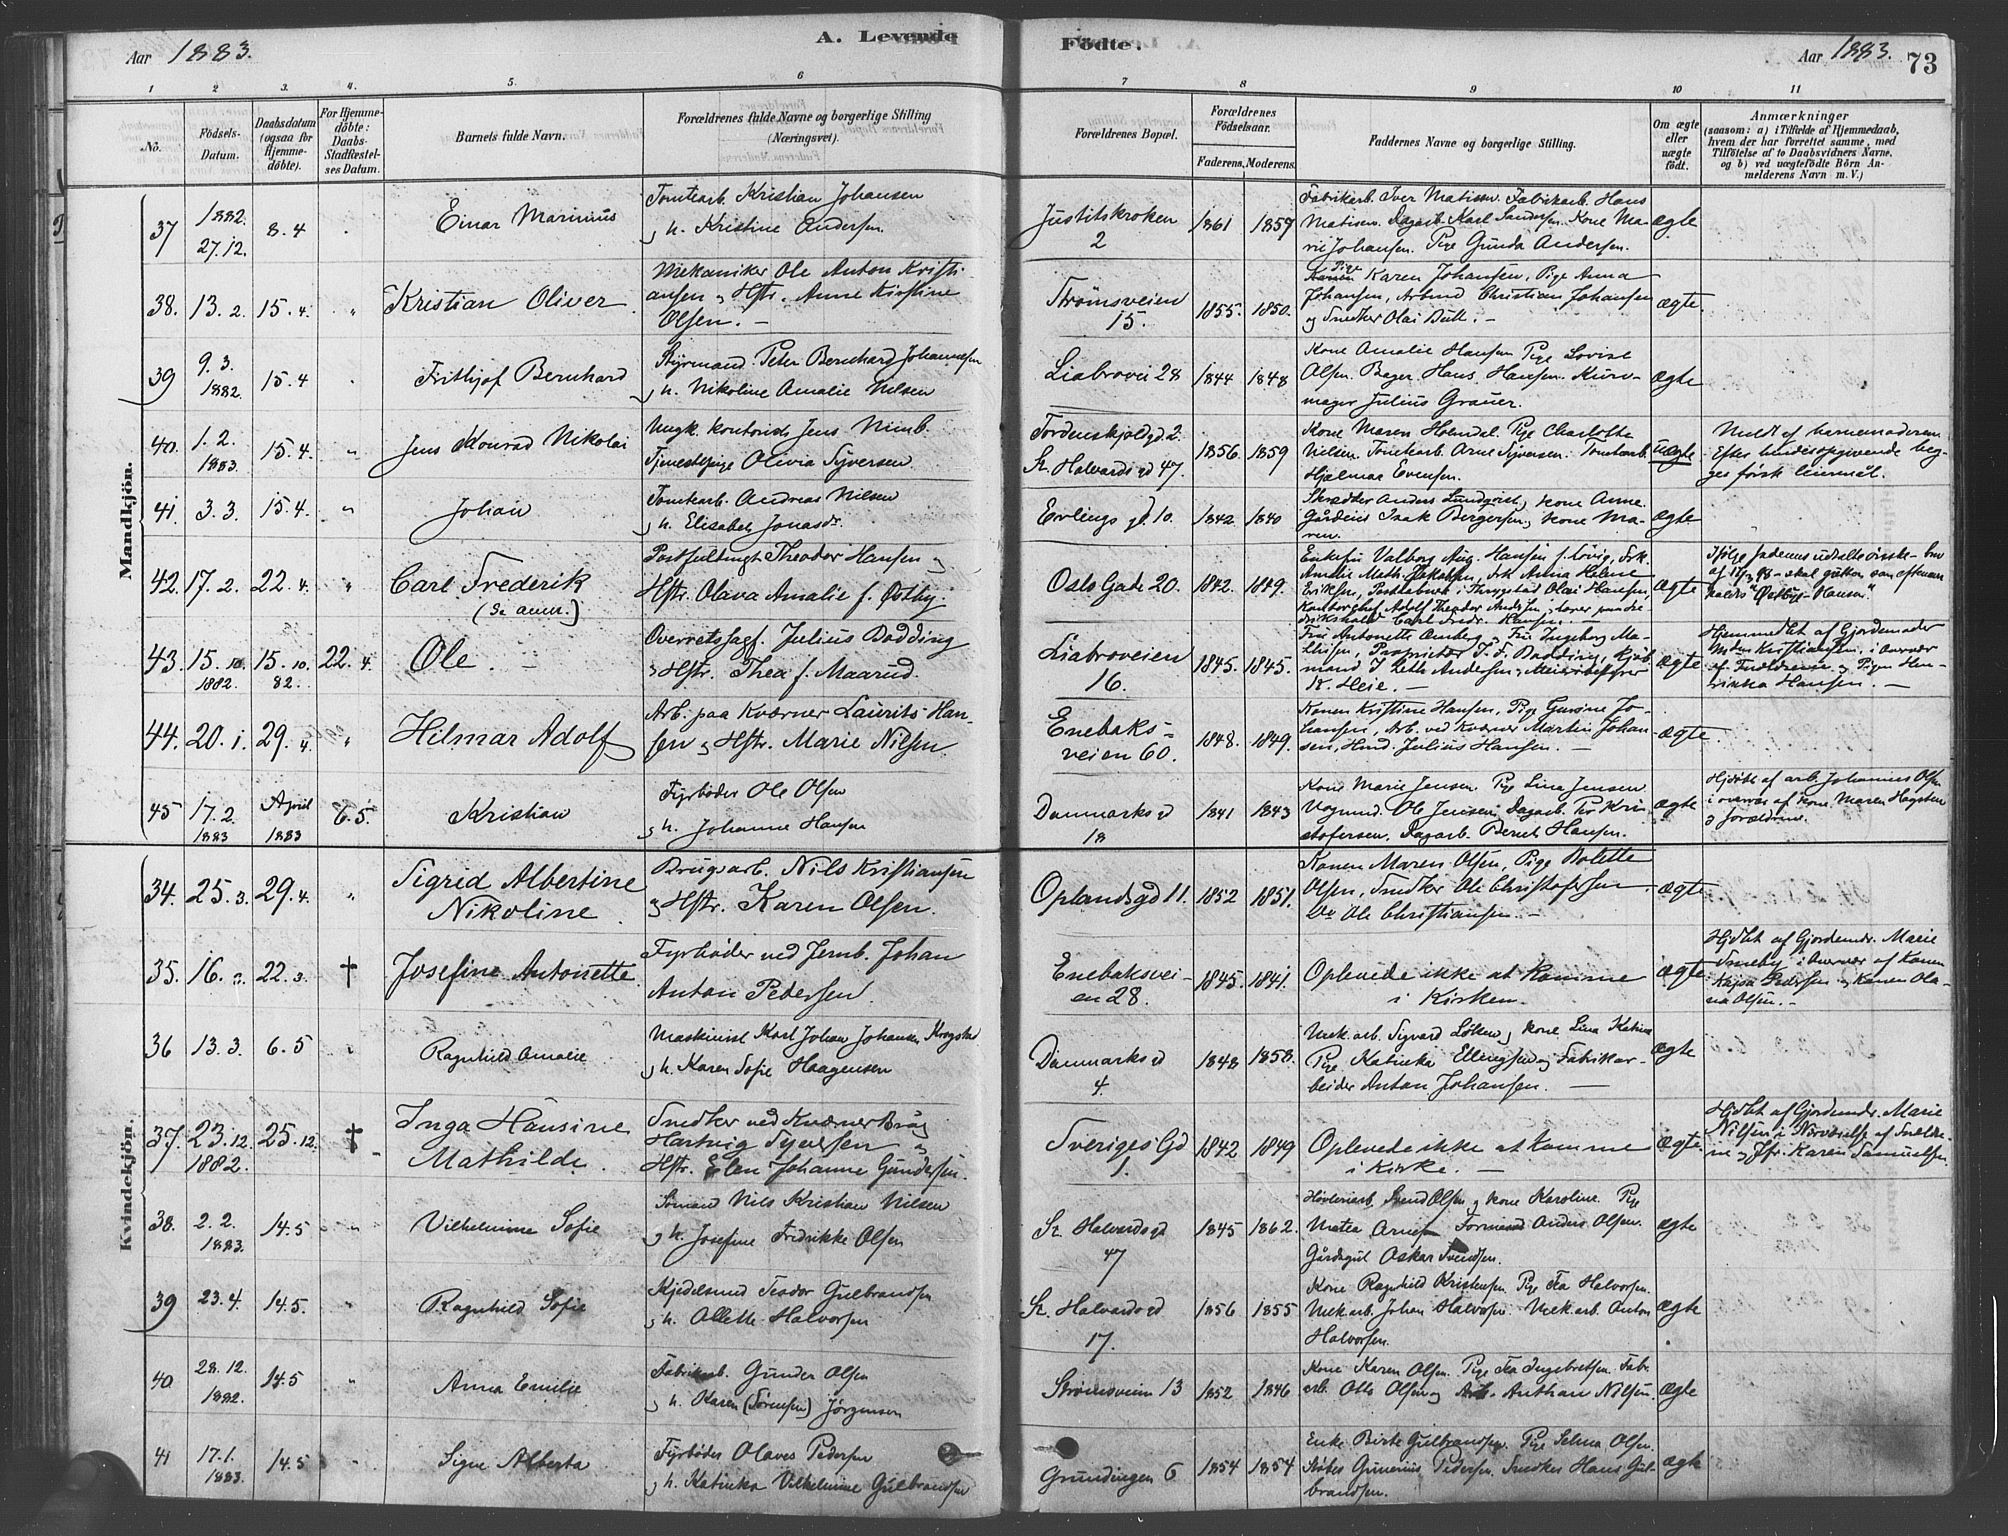 Aar 1883.
A. Levende Födte.
Aar 1883.
73
1 2 3. 4. 5. 6 7 8 9 10 11
No.
Födsels-
Datum.
Daabsdatum
(ogsaa for
Hjemme-
döbte).
For Hjemme-
döbte:
Daabs-
Stadfæstel-
ses Datum.
Barnets fulde Navn.
Forældrenes fulde Navne og borgerlige Stilling
(Næringsvei).
Forældrenes Bopæl.
Forældrenes
Födselsaar.
Faderens. Moderens.
Faddernes Navne og borgerlige Stilling.
Om ægte
eller
uægte
født.
Anmærkninger
(saasom: a) i Tilfælde af Hjemmedaab,
hvem der har forrettet samme, med
Tilföielse af to Daabsvidners Navne,
og b) ved uægtefödte Börn An-
melderens Navn m. V.)
Mandkjön.
37
1882.
27.12.
8.4
Einar Marinius
Tomtearb. Kristian Johansen
og h. Kristine Andersen
Justitskroken
2
1861
1857
Fabrikarb. Iver Matisen. Fabrikarb. Hans
Matisen. Dagarb. Karl Sandersen. Kone Ma-
rie Johansen. Pige Gunda Andersen.
ægte
38.
13.2.
15.4.
"
Kristian Oliver
Mekaniker Ole Anton Kristi-
ansen og Hstr. Anne Kirstine
Olsen. —
Strömsveien
15.
1855.
1850.
Pige
Karen Johansen, Pige Anna
Johansen, Arbmd Christian Johansen
og Snedker Olai Bull. —
ægte.
39
9.3.
1882.
15.4
Frithjof Bernhard
Styrmand Peter Bernhard Johannesen
og h. Nikoline Amalie Nilsen
Liabrovei 28
1844
1848
Kone Amalie Hansen Pige Lovise
Olsen. Bager Hans Hansen. Kurv-
mager Julius Grauer.
ægte
40.
1.2.
1883.
15.4.
"
Jens Konrad Nikolai
Ungk. kontorist Jens Nimb.
Tjenestepige Olivia Syversen
Tordenskjoldgd 2.
St. Halvards gd 47.
1856.
1859
Kone Maren Holmdal. Pige Charlotte
Nielsen. Tomtearb. Arne Syversen. Tomtearb.
Hjalmar Evensen.
uægte
Meldt af barnemoderen
Efter hendes opgivende beg-
ges först leiermål.
41.
3.3.
15.4.
"
Johan
Tomtearb. Andreas Nilsen
og h. Elisabet Jonasdr.
Erlings gd. 10.
1842.
1840
Skrædder Anders Lundqvist og Kone Anne.
Gårdeier Isak Bergersen og Kone Ma-
ren.
ægte
42.
17.2.
22.4.
"
Carl Frederik
(Se anm.)
Postfuldmægt. Theodor Hansen og
Hstr. Olava Amalie f. Østby.
Oslo Gade 20.
1842.
1849.
Enkefru Valborg Aug. Hansen f. Lövig, Frk.
Amalie Math. Jakobsen, Frk Anna Helene
Eriksen, Postaabner i Thrygstad Olai Hansen,
Kontorchef Adolf Theodor Andersen,
Carl Fredr. Hansen. —
ægte
Ifölge faderens udtalte önske
skal gutten som efternavn
"Østbye-Hansen"
43.
15.10.
1882.
15.10.
82.
22.4.
Ole. —
Overretssagf. Julius Dodding
og Hstr. Thea f. Maarud.
Liabroveien
16.
1845.
1845.
Fru Antonette Omberg, Fru Ingeborg Ma-
thisen, Proprietær J. F. Dodding, Kjöb-
mand J. Andersen,
K. Heie. —
ægte
Hjemmedbt af Gjordemoder
Kristiansen, i Overvær
af Forældrene og Pigen Hen-
rikka Hansen. —
44.
20.1.
29.4.
"
Hilmar Adolf
Arb. paa Kværner Laurits Han-
sen og Hstr. Marie Nilsen
Enebaks-
veien 60.
1848.
1849.
Konen Kristine Hansen, Pige Gurine Jo-
hansen, Arb. ved Kværner Martin Johan-
sen, Hmd. Julius Hansen. —
ægte.
45
17.2.
1883
April
1883
6.5.
Kristian
Fyrböder Ole Olsen
og h. Johanne Hansen
Danmarks gd
18
1841
1843
Kone Marie Jensen. Pige Lina Jensen
Vognmd. Ole Jensen. Dagarb. Per Kris-
tofersen. Dagarb. Bernt Hansen.
ægte
Hjdöbt af arb. Johannes Olsen
i overvær af Kone Maren Hagsten
og forældrene.
Kvindekjön.
34.
25.3.
29.4.
"
Sigrid Albertine
Nikoline
Brugsarb. Nils Kristiansen
og Hstr. Karen Olsen.
Oplandsgd 11.
1852
1851.
Konen Maren Olsen, Pige Bolette
Olsen, Snedker Ole Christofersen
Do Ole Christiansen. —
ægte
35.
16.3.
22.3.
†
Josefine Antonette
Fyrböder ved Jernb. Johan
Anton Pedersen.
Enebaksvei-
en 28.
1845.
1841.
Oplevede ikke at komme
i Kirken.
ægte
Hjdbt af Gjordemdr. Marie
Smeby i Overvær af Konen
Kajsa Pedersen og Konen Ola-
va Olsen. —
36
13.3.
6.5
Ragnhild Amalie
Maskinist Karl Johan Johansen Krogstad
og h. Karen Sofie Haagensen
Danmarks gd
4.
1848
1850.
Mek. arb. Sigvard Löken og Kone Lina Katrine
Pige Katinka Ellingsen og Fabrikar-
beider Anton Johansen. —
ægte
37.
23.12.
1882.
25.12.
†
Inga Hansine
Mathilde.
Snedker ved Kværner Brug
Hartvig Syversen og
Hstr. Elen Johanne Gundersen.
Sveriges Gd
1.
1842
1849
Oplevede ikke at komme
i Kirke. —
ægte.
Hjdbt af Gjordemdr. Marie
Nilsen i Nærværelse af Forældre-
ne og Jfr. Karen Samuelsen.
38.
2.2.
1883.
14.5
"
Vilhelmine Sofie
Sömand Nils Kristian Nilsen
og h. Josefine Fredrikke Olsen
St. Halvards gd
47
1845
1862.
Hövleriarb. Svend Olsen og Kone Karoline. Pige
Matea Arnesen Formand Anders Olsen.
Gårdsgut Oskar Svendsen.
ægte
39
23.4.
14.5.
"
Ragnhild Sofie
Kjedelsmed Teodor Gulbrandsen
og h. Olette Halvorsen
St. Halvards gd
17.
1856
1855
Kone Ragnhild Kristensen. Pige Fea Halvorsen.
Mek. arb. Johan Halvorsen. Mek. arb. Anton
Halvorsen.
ægte
40
28.12.
1882.
14.5
"
Anna Emilie
Fabrikarb. Gunder Olsen
og h. Karen (Sörensen) Jörgensen
Strömsveien 13
1852
1846
Kone Karen Olsen. Pige Fea Ingebretsen. Fabr.
arb. Otto Olsen og Arb. Anthon Nilsen.
ægte
41
17.1.
1883.
14.5
Signe Alberta
Fyrböder Olaves Pedersen
og h. Katinka Vilhelmine Gulbrandsen
Grundingen 6
1854
1854
Enke Birte Gulbrandsen. Pige Selma Olsen.
Stöber Gunerius Pedersen. Snedker Hans Gul-
brandsen.
ægte